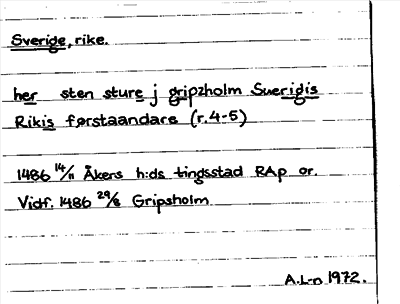 Sverige, rike.
her sten sture j gripzholm Suerigis
Rikis førstaandare (r.4-5)
1486 14/11 Åkers h:ds tingsstad RAp or.
Vidf. 1486 29/8 Gripsholm
A.L-n 1972.